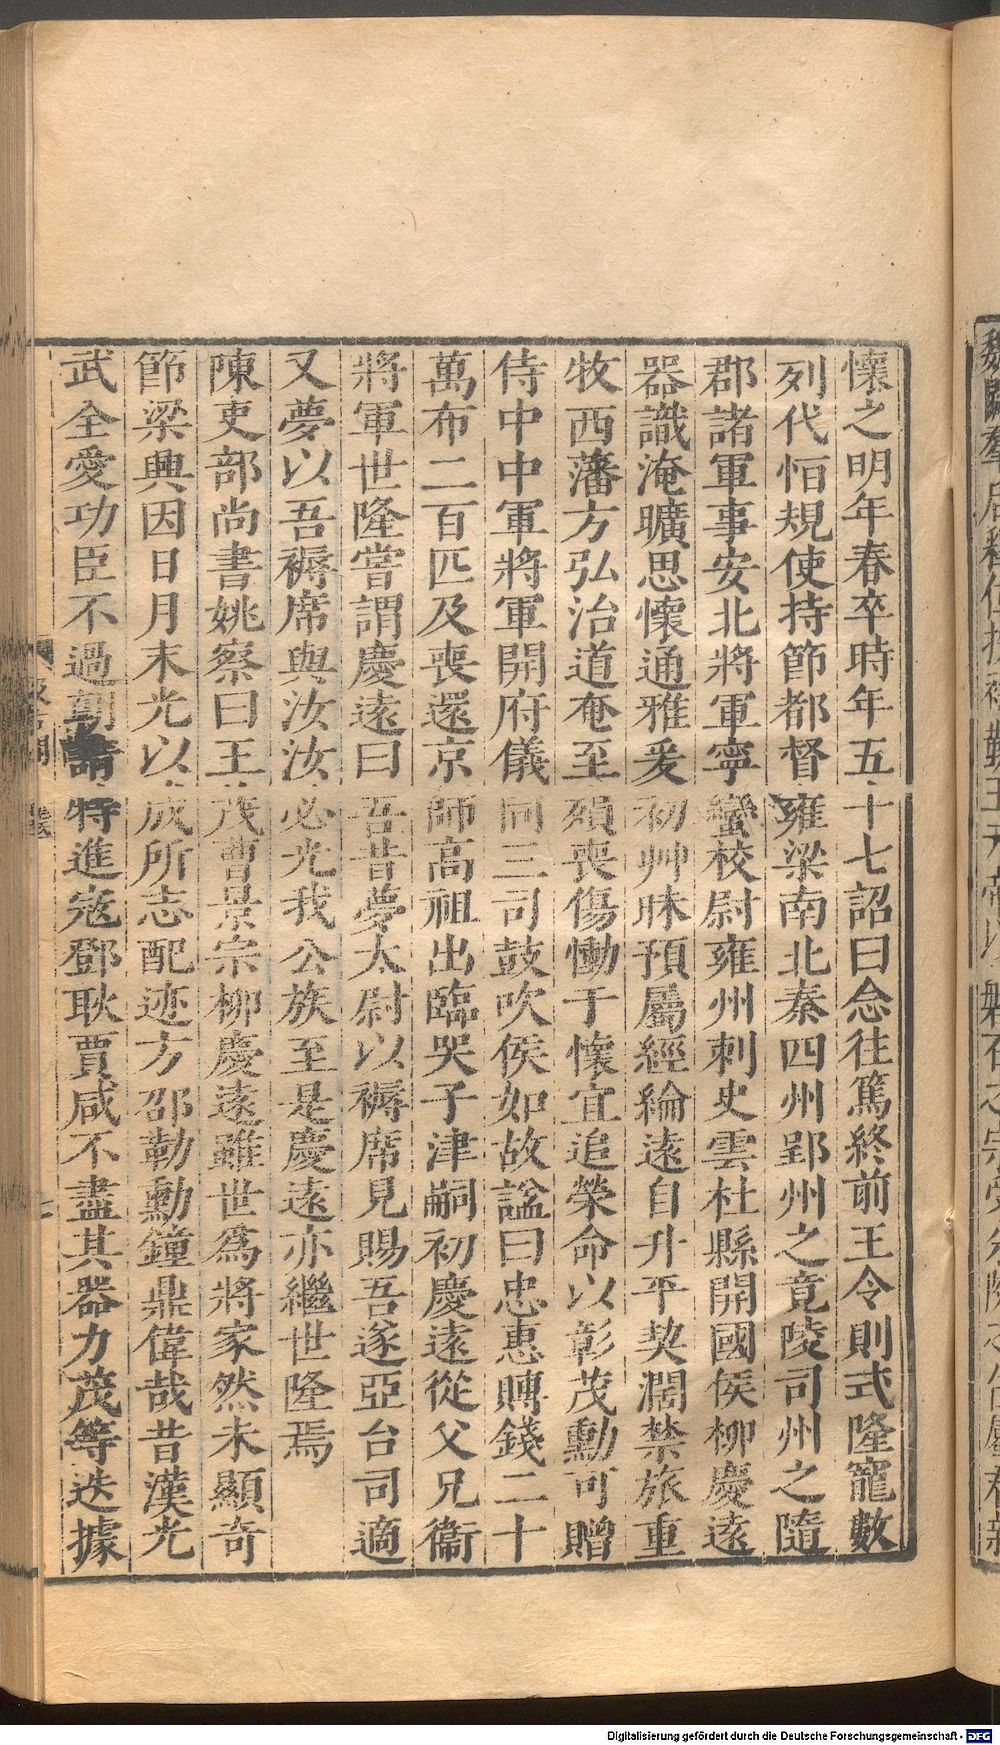 懷之明年春卒時年五十七詔曰念往篤終前王令則式隆寵數
列代恒規使持節都督雍梁南北秦四州郢州之竟陵司州之隨
郡諸軍事安北將軍寧蠻校尉雍州刺史雲杜縣開國侯柳慶遠
器識淹曠思懷通雅爰初艸昧預屬經綸遠自升平契濶禁旅重
牧西藩方弘治道奄至殞喪傷慟于懷宜追榮命以彰茂勳可贈
侍中中軍將軍開府儀同三司鼓吹侯如故謚曰忠惠賻錢二十
萬布二百匹及喪還京師高祖出臨哭子津嗣初慶遠從父兄衞
將軍世隆嘗謂慶遠曰吾昔夢太尉以褥席見賜吾遂亞台司適
又夢以吾褥席與汝汝必光我公族至是慶遠亦繼世隆焉
陳吏部尚書姚察曰王茂曹景宗柳慶遠雖世爲將家然未顯奇
節梁興因日月末光以成所志配迹方邵勒勳鐘鼎偉哉昔漢光
武全愛功臣不過朝請特進寇鄧耿賈咸不盡其器力茂等迭據
Digitalisierung gefördert durch die Deutsche Forschungsgemeinschaft - DFG